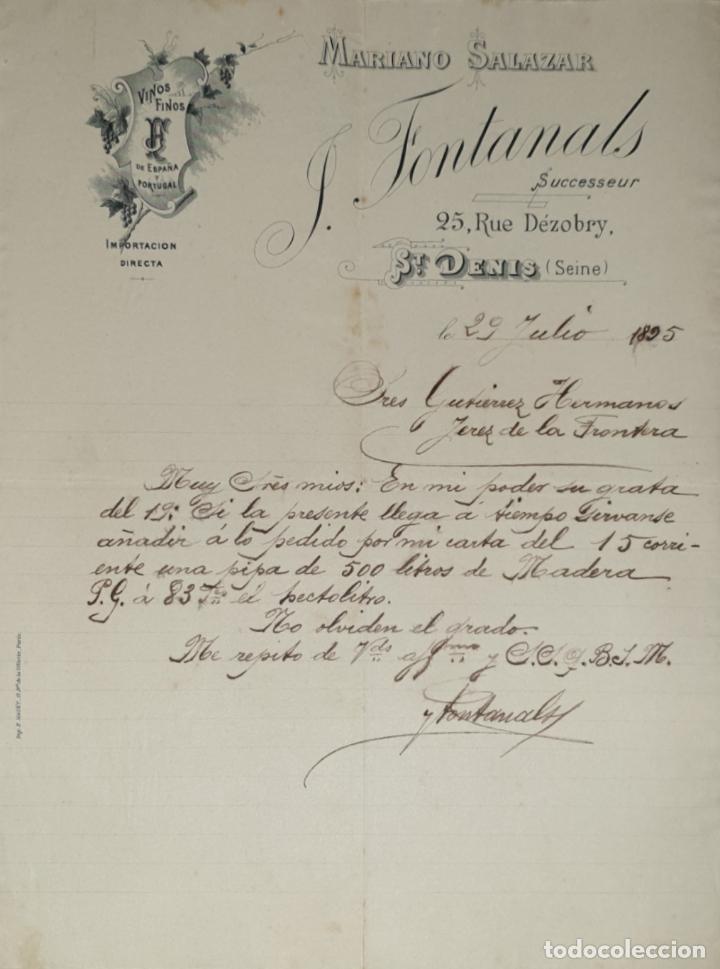 MARIANO SALAZAR
J. Fontanals
Successeur
25, Rue Dézobry,
ST. DENIS (Seine)
VINOS
FINOS
DE ESPAÑA
Y
PORTUGAL
IMPORTACION
DIRECTA
le 29 Julio 1895
Sres Gutiérrez Hermanos
Jerez de la Frontera
Muy Srēs mios: En mi poder su grata
del 19: Si la presente llega á tiempo sirvanse
añadir á lo pedido por mi carta del 15 corri-
ente una pipa de 500 litros de Madera
P.G. á 83 el hectolitro.
No olviden el grado.
Me repito de Vds affmo y S.S.q.B.S.M.
Fontanals
todocoleccion